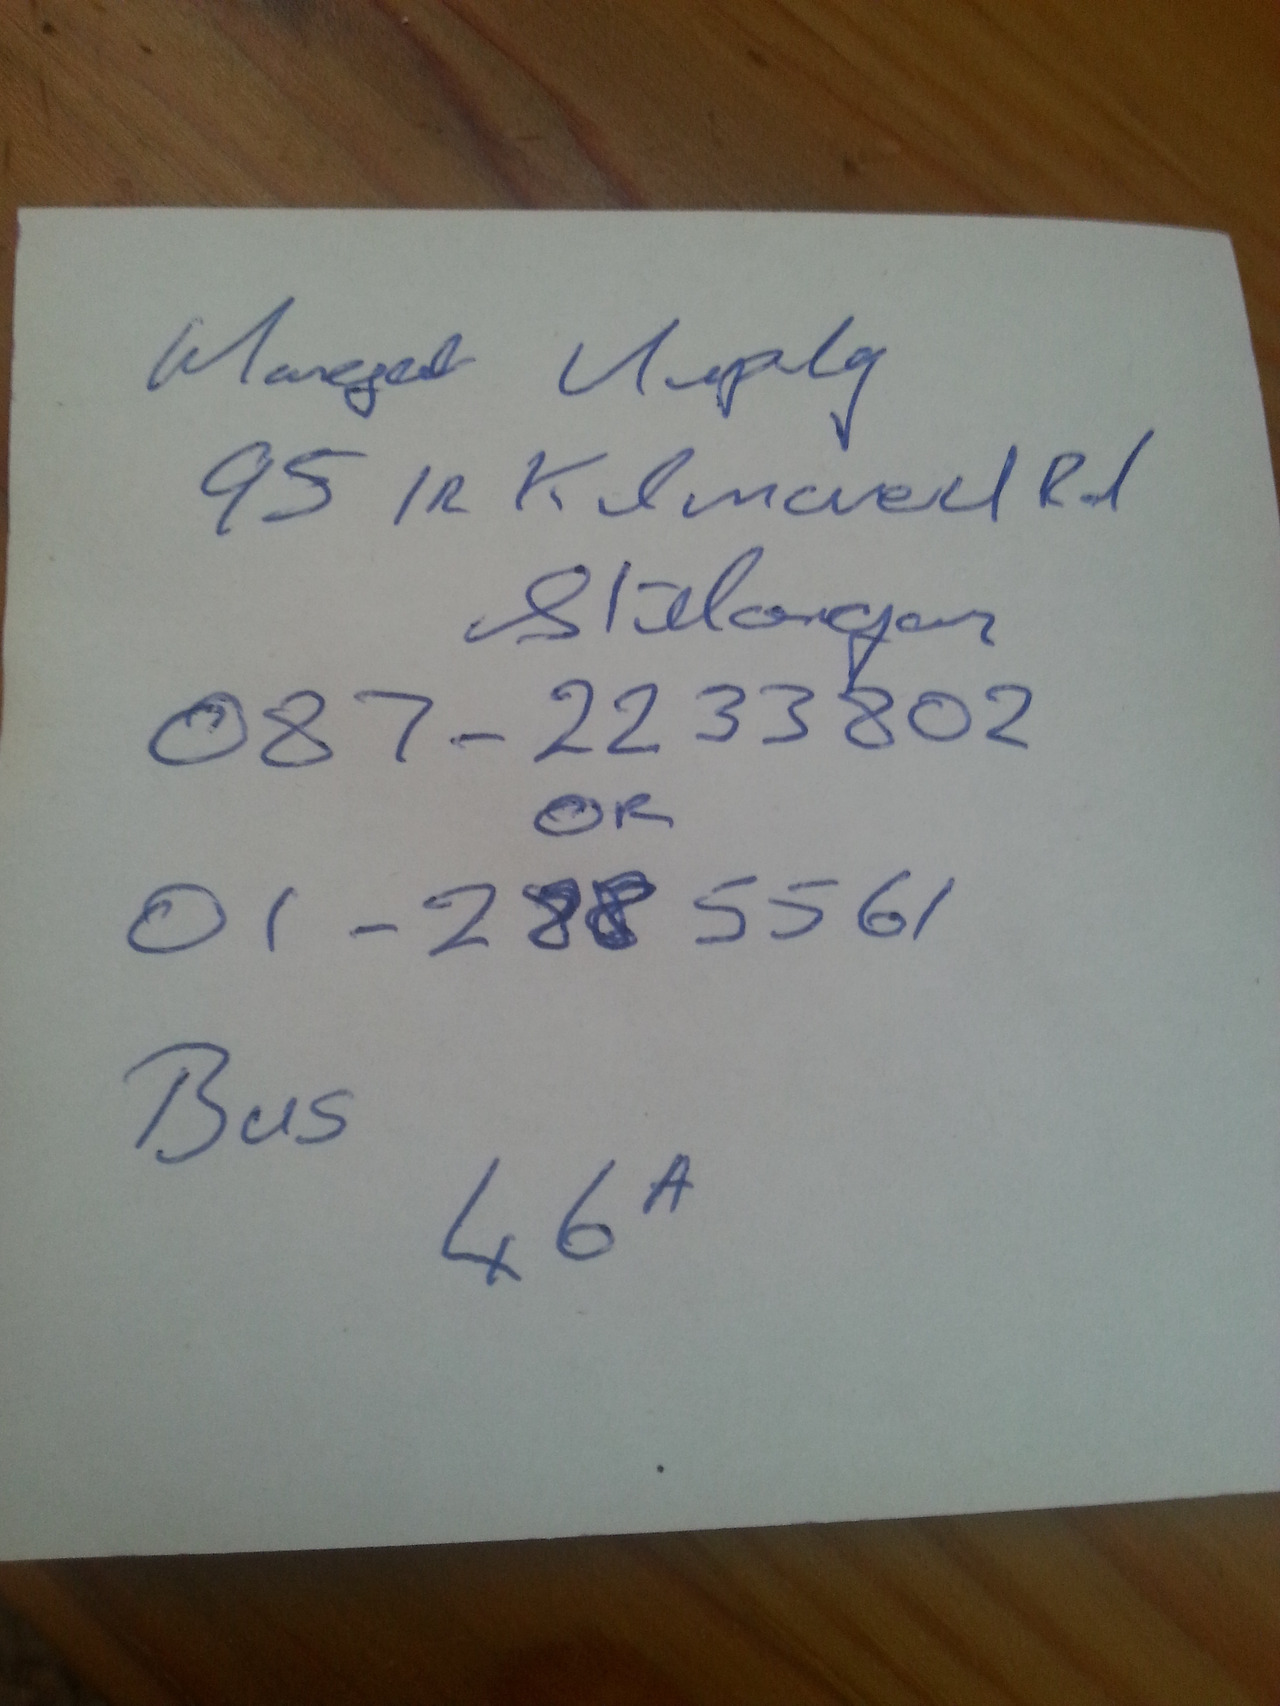 Margaret Murphy
95 LR Kilmacud Rd
Stillorgan
087-2233802
OR
01-2885561
Bus
46A